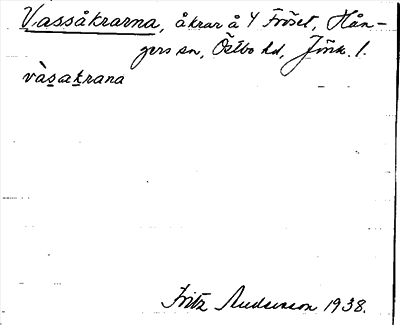 Vassåkrarna, åkrar å Y Fröset, Hån-
gers sn, Östbo hd, Jönk. l.
vàsakrana
Fritz Anderson 1938.